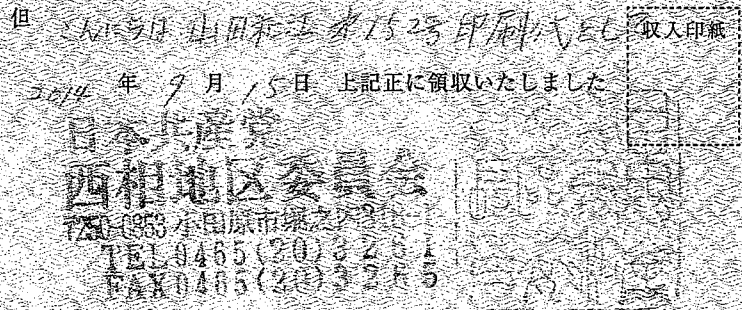 但 こんにちは 山田和江 第152号 印刷代として
収入印紙
2014 年 9 月 15日 上記正に領収いたしました
日本共産党
西相地区委員会
〒250-0853 小田原市堀之内
TEL 0465(20)3261
FAX 0465(20)3265